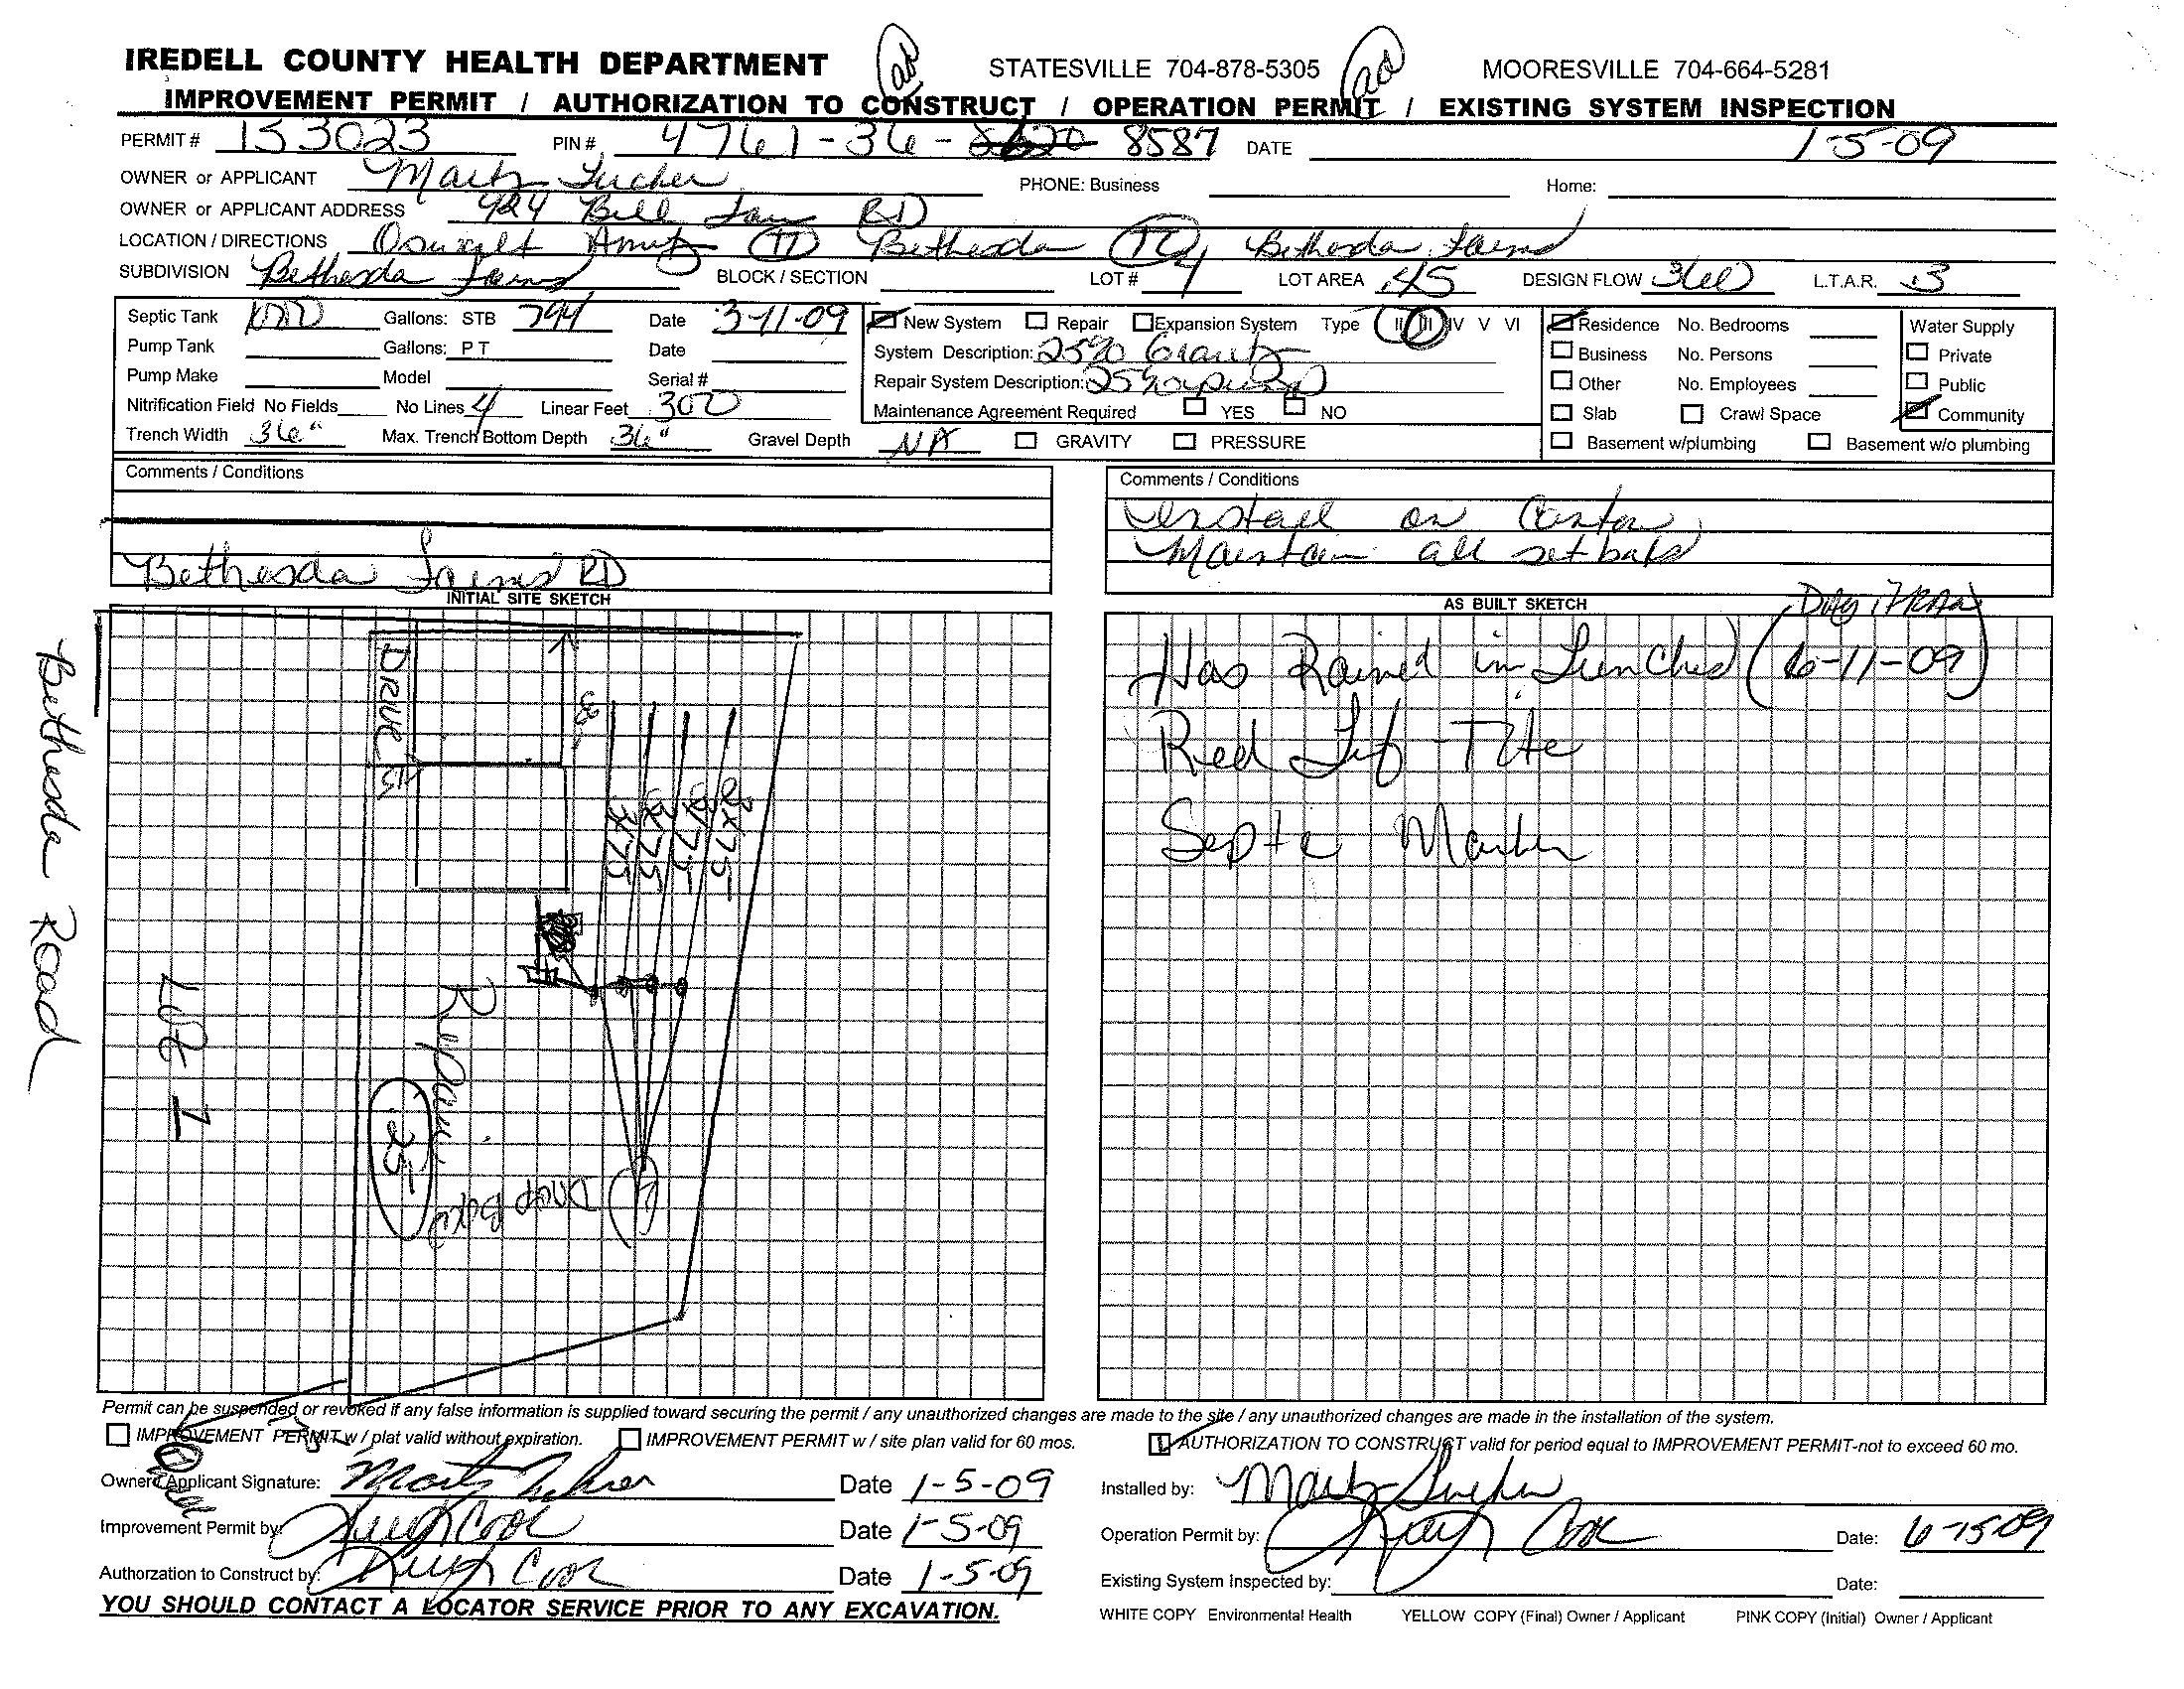 IREDELL COUNTY HEALTH DEPARTMENT STATESVILLE 704-878-5305 MOORESVILLE 704-664-5281
IMPROVEMENT PERMIT / AUTHORIZATION TO CONSTRUCT / OPERATION PERMIT / EXISTING SYSTEM INSPECTION
PERMIT # 153023 PIN # 4761-36- 8587 DATE 1-5-09
OWNER or APPLICANT PHONE: Business Home:
OWNER or APPLICANT ADDRESS 424 Bill RD
LOCATION / DIRECTIONS Bethesda Bethesda Farms
SUBDIVISION Bethesda Farms BLOCK / SECTION LOT # 1 LOT AREA .45 DESIGN FLOW 360 L.T.A.R. .3
Septic Tank 1000 Gallons: STB 794 Date 3-11-09 New System Repair Expansion System Type II III IV V VI Residence No. Bedrooms Water Supply
Pump Tank Gallons: P T Date System Description: 25% Business No. Persons Private
Pump Make Model Serial # Repair System Description: 25% Other No. Employees Public
Nitrification Field No Fields No Lines 4 Linear Feet 300 Maintenance Agreement Required YES NO Slab Crawl Space Community
Trench Width 36" Max. Trench Bottom Depth 36" Gravel Depth NA GRAVITY PRESSURE Basement w/plumbing Basement w/o plumbing
Comments / Conditions
Bethesda Farms RD
Comments / Conditions
Install on Contour
Maintain all setbaks
INITIAL SITE SKETCH
Bethesda Road
Lot 1
DRIVE
15
3x75
3x75
3x75
3x75
Repair
.25
Drop Box
AS BUILT SKETCH
Has Rained in Trenches (6-11-09)
Red
Septic
Permit can be suspended or revoked if any false information is supplied toward securing the permit / any unauthorized changes are made to the site / any unauthorized changes are made in the installation of the system.
IMPROVEMENT PERMIT w / plat valid without expiration. IMPROVEMENT PERMIT w / site plan valid for 60 mos. AUTHORIZATION TO CONSTRUCT valid for period equal to IMPROVEMENT PERMIT-not to exceed 60 mo.
Owner/Applicant Signature: Date 1-5-09 Installed by:
Improvement Permit by: Cook Date 1-5-09 Operation Permit by: Cook Date: 6-15-09
Authorzation to Construct by: Cook Date 1-5-09 Existing System Inspected by: Date:
YOU SHOULD CONTACT A LOCATOR SERVICE PRIOR TO ANY EXCAVATION. WHITE COPY Environmental Health YELLOW COPY (Final) Owner / Applicant PINK COPY (Initial) Owner / Applicant